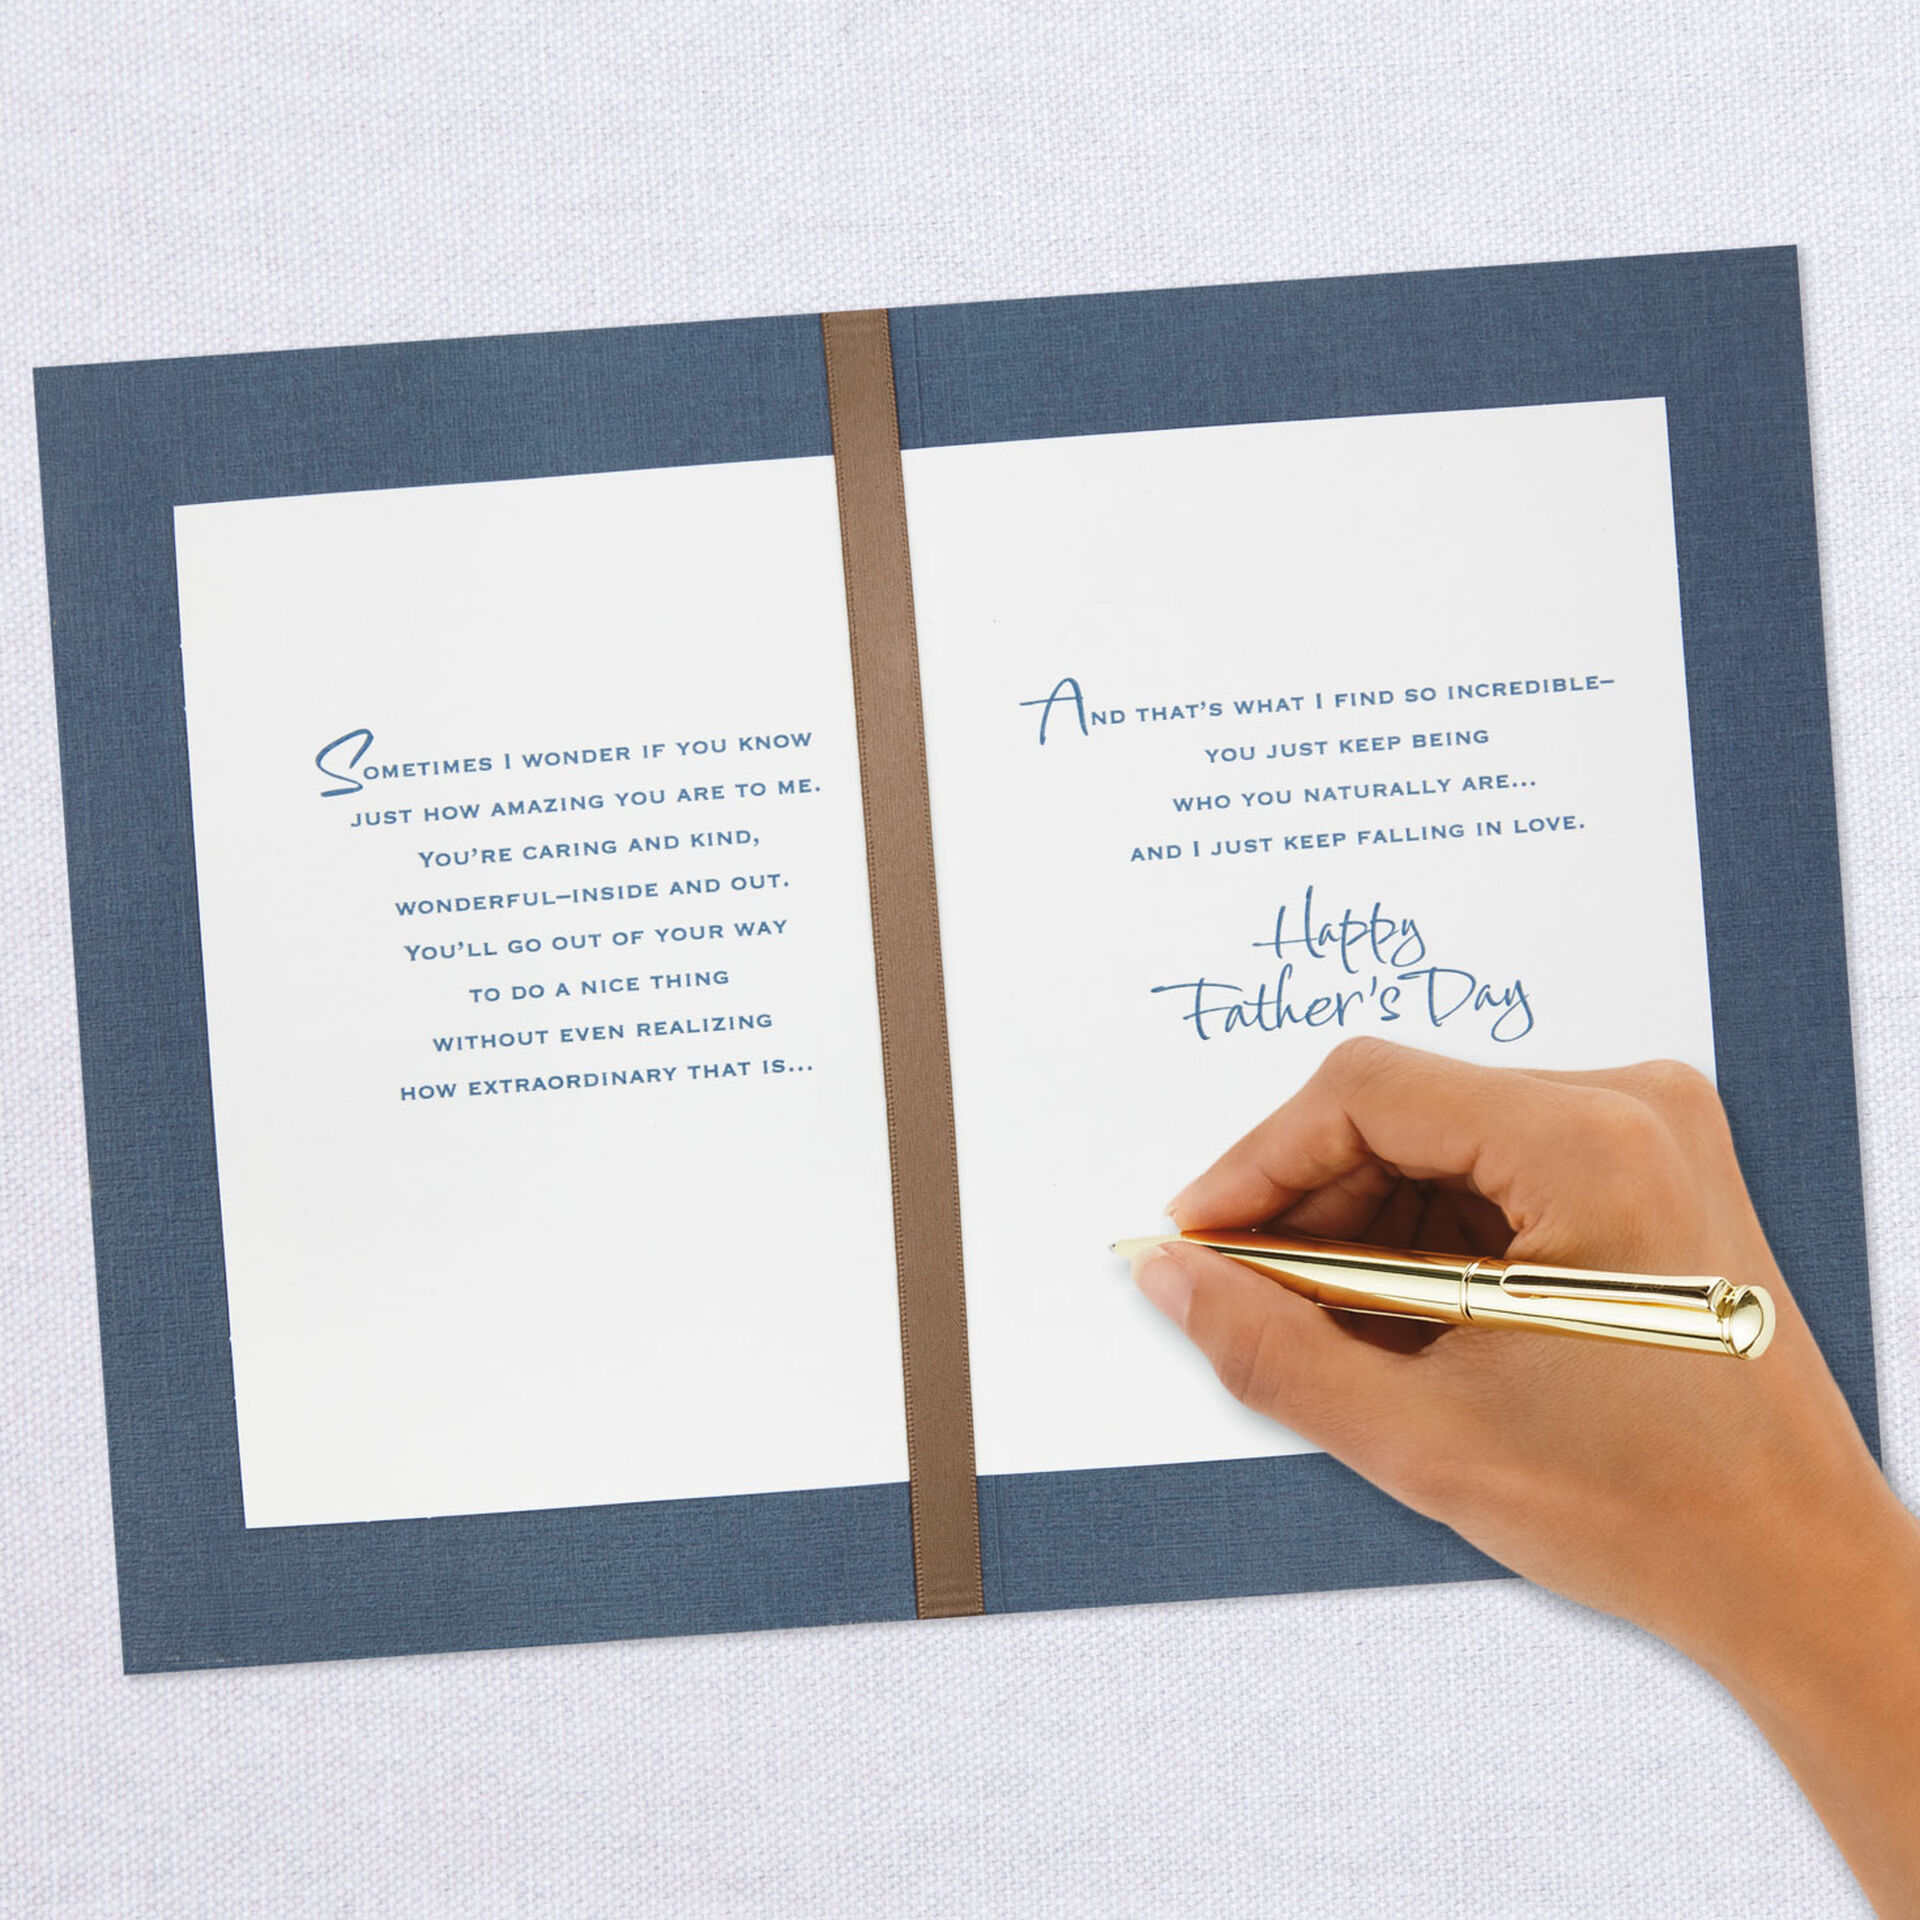 Sometimes I wonder if you know
just how amazing you are to me.
You're caring and kind,
wonderful—inside and out.
You'll go out of your way
to do a nice thing
without even realizing
how extraordinary that is...
And that's what I find so incredible—
you just keep being
who you naturally are...
and I just keep falling in love.
Happy
Father's Day